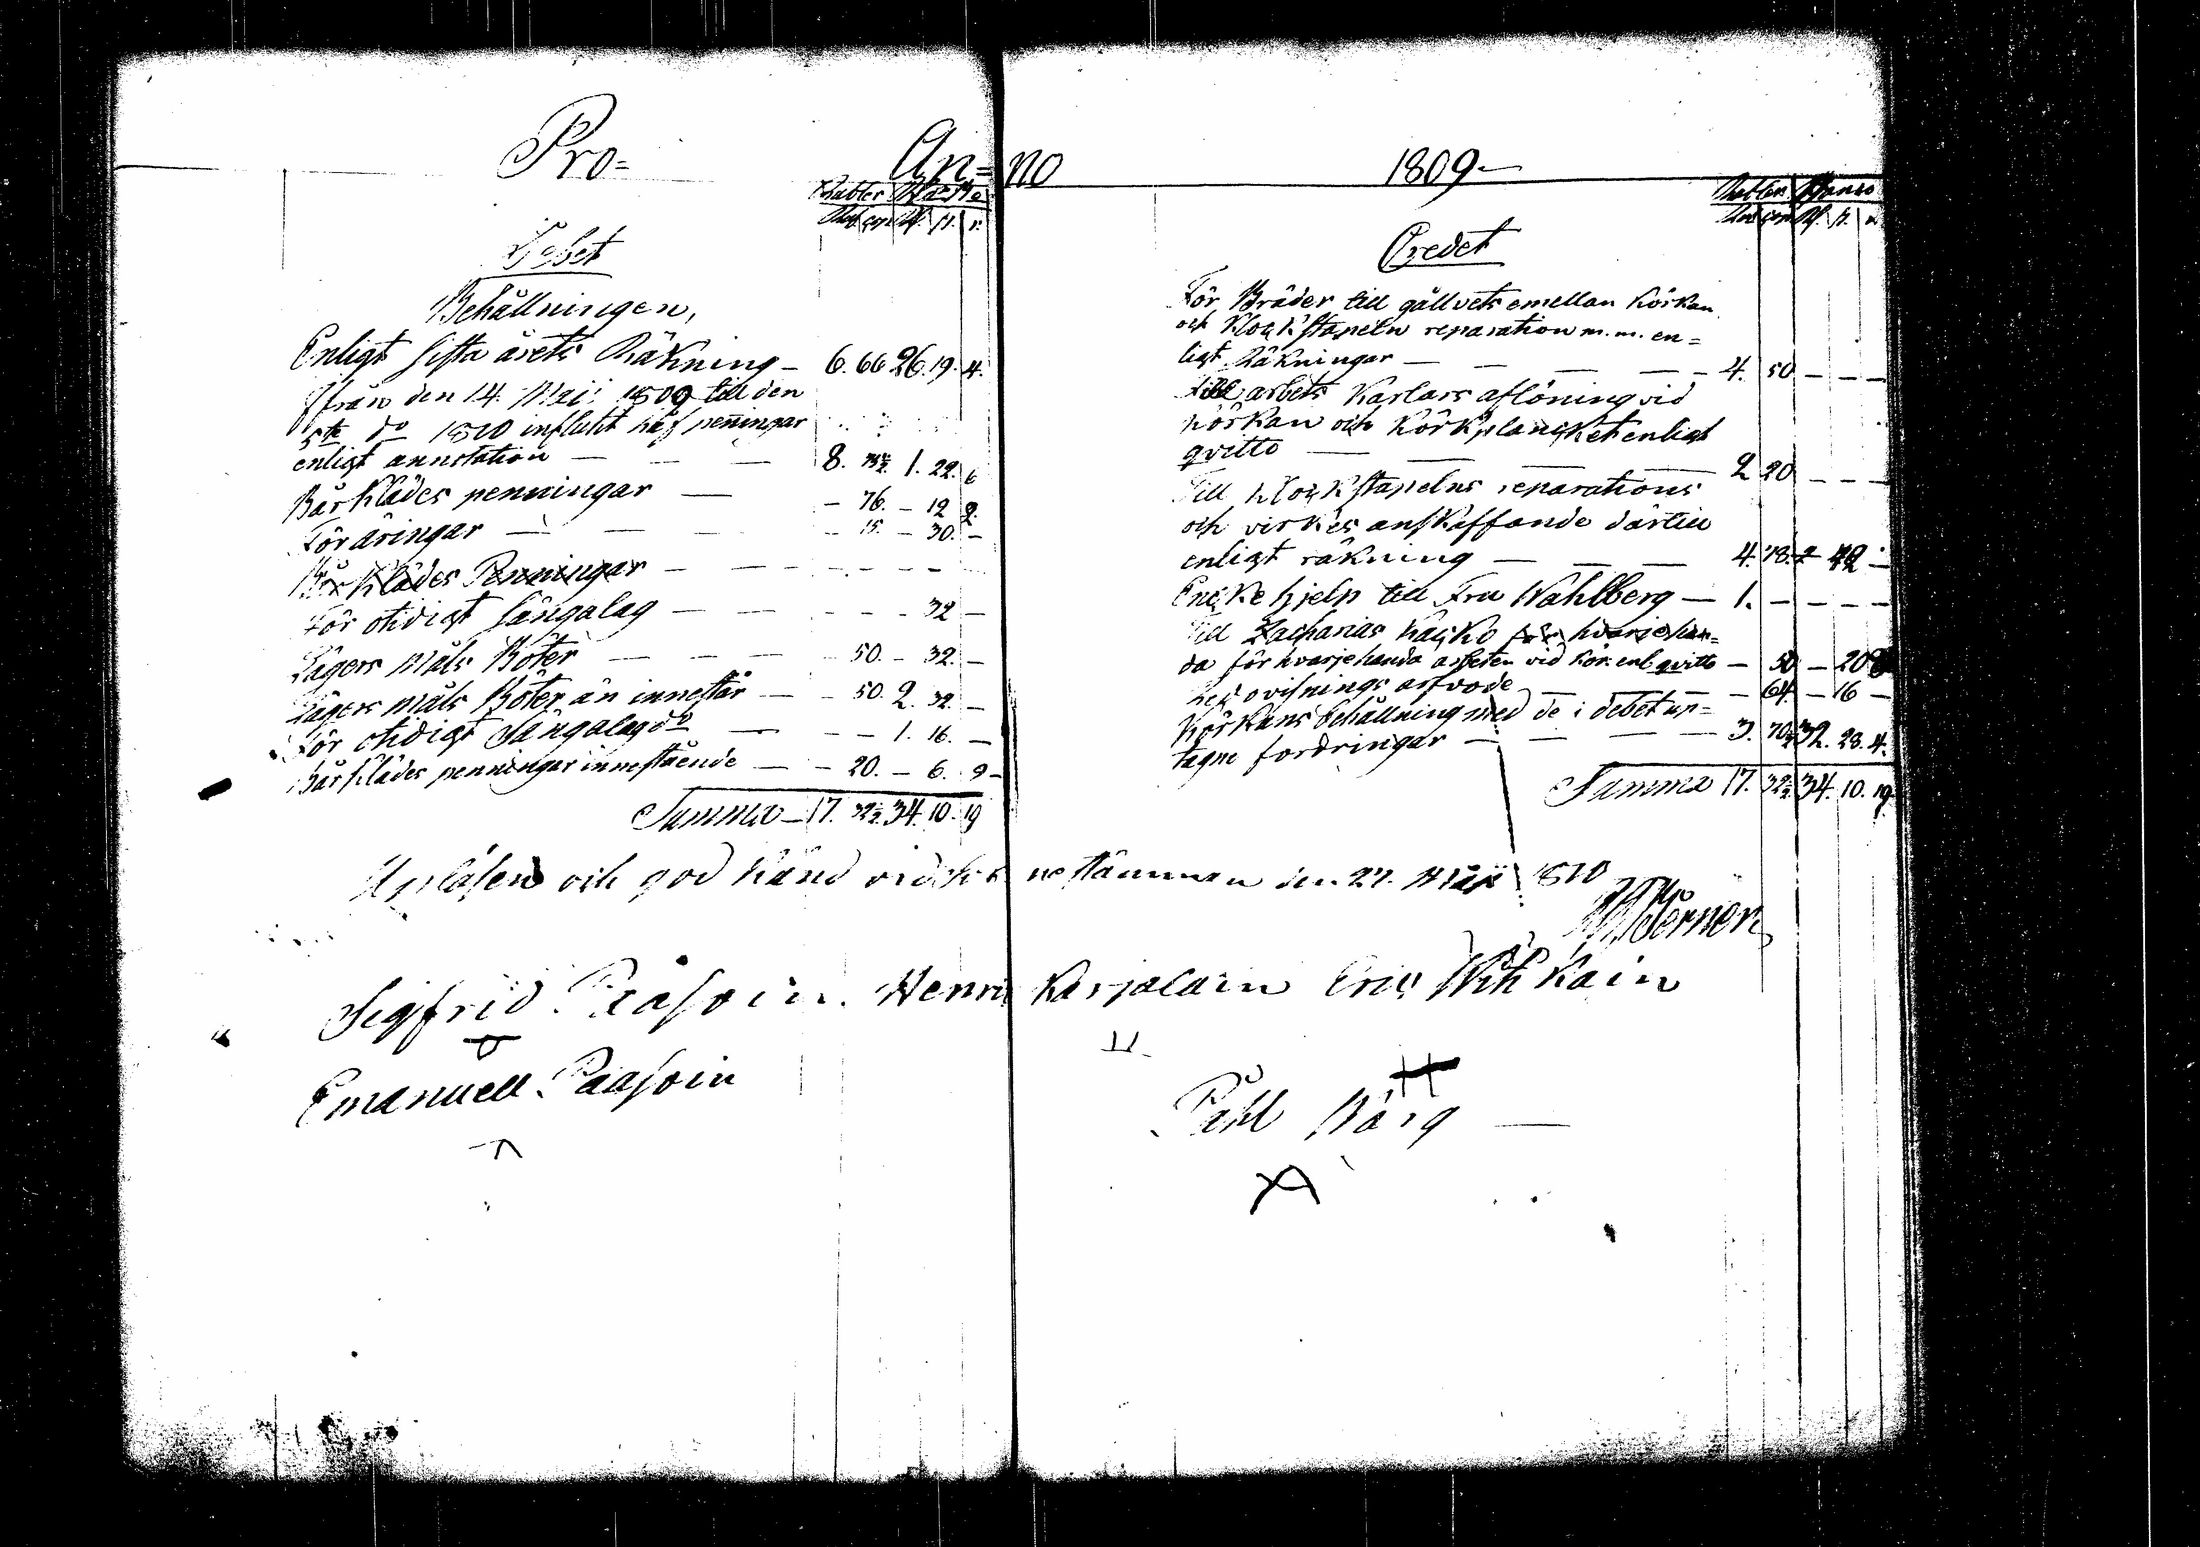 Pro= An=no 1809
Debet
Behållningen,
Enligt sista årets Räkning — 6. 66 26. 19. 4.
ifrån den 14. Maji 1809 till den
5te do 1810 influtit håf penningar
enligt annotation — — — 8. 1. 22. 6
Bårklädes penningar — — 76. — 12 2.
Föräringar — — — — 15. — 30. —
Bårklädes Penningar — — — — — — —
För otidigt sängalag — — — — — 32 —
Lägers måls Böter — — — 50. — 32. —
Lägers måls Böter än innestår — — 50. 2. 32. —
För otidigt Sängalag do — — — 1. 16. —
Bårklädes penningar innestående — — 20. — 6. 9 —
Summa — 17. 32½. 34. 10. 19
Credet
För Bräder till gållvets emellan Körkan
och Klockstapeln reparation m.m. en=
ligt Räkningar — — — — 4. 50 — — —
Till arbets Karlars aflöning vid
Körkan och Körkplancket enligt
qvitto — — — — 2 20 — — —
Till Klockstapelns reparations
och virkes anskaffande därtill
enligt räkning — — — 4. 78. 42 —
Encke hjelp till Fru Wahlberg — 1. — — — —
Till Zacharias Håcko för hvarjehan=
da för hvarjehanda arbeten vid Kör. enl qvitto — 50 — 20
arfvode — — — — 64. — 16 —
Körkans behållning med de i debet up=
tagne fordringar — — — — 3. 70½ 32. 28. 4.
Summa 17. 32½ 34. 10. 19.
Upläsen och god känd vid Sockne stämman den 27. Maji 1810
Sigfrid Paasoin. Henric Karjalain Eric Wihkain
Emanuell Paasoin
Påhl Bärg —